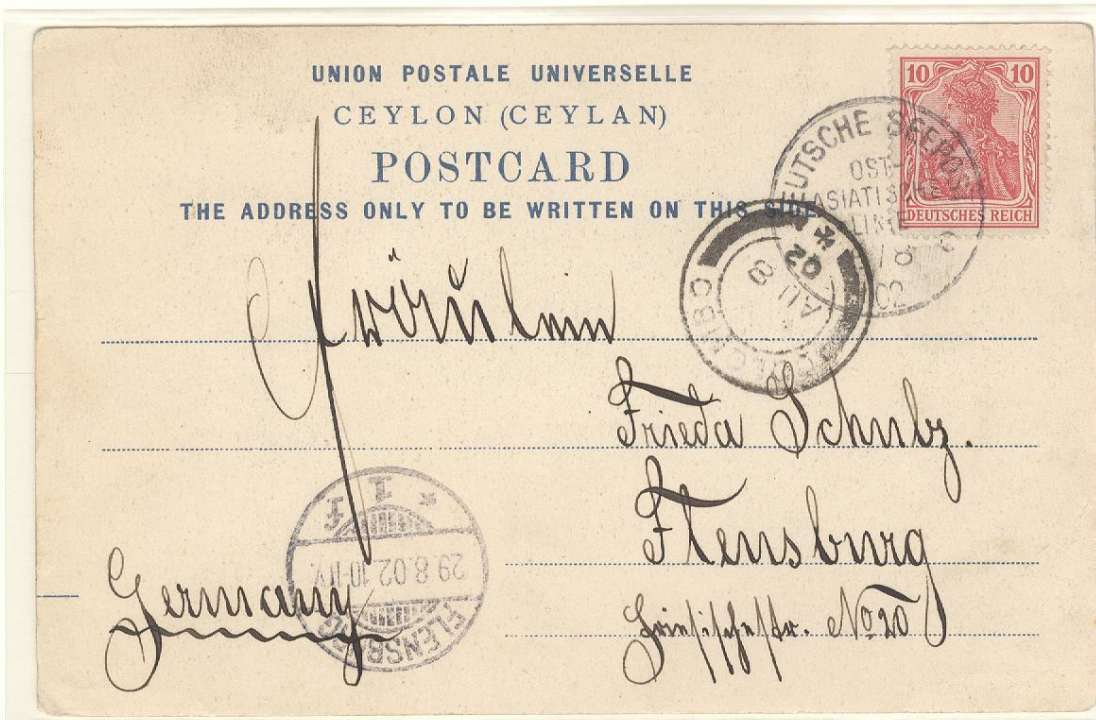 UNION POSTALE UNIVERSELLE
CEYLON (CEYLAN)
POSTCARD
THE ADDRESS ONLY TO BE WRITTEN ON THIS SIDE
10 10
DEUTSCHES REICH
DEUTSCHE SEEPOST
OST-
ASIATISCHE
LINIE
AU 8
02
Fräulein
Frieda Schulz.
Flensburg
Friesischestr. No 20
Germany
FLENSBURG
29.8.02.10-11V.
* 1 f